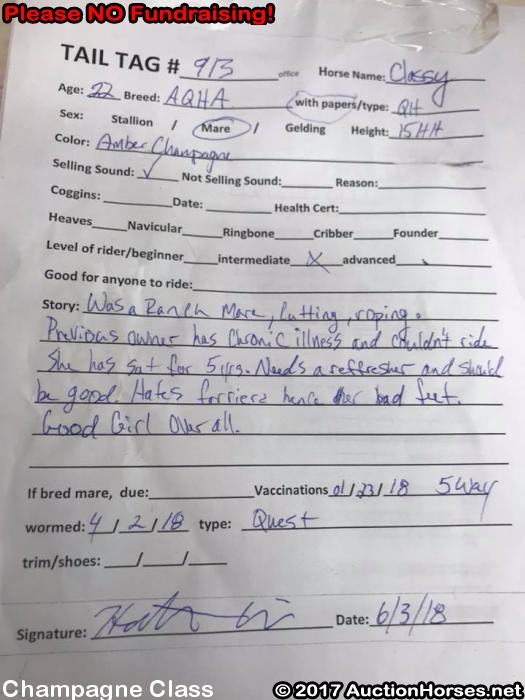 Please NO Fundraising!
TAIL TAG # 913 office Horse Name: Classy
Age: 22 Breed: AQHA with papers/type: QH
Sex: Stallion / Mare / Gelding Height: 15HH
Color: Amber Champagne
Selling Sound: ✓ Not Selling Sound: Reason:
Coggins: Date: Health Cert:
Heaves Navicular Ringbone Cribber Founder
Level of rider/beginner intermediate X advanced
Good for anyone to ride:
Story: Was a Ranch Mare, Cutting, roping.
Previous owner has Chronic illness and couldn't ride
She has sat for 5 yrs. Needs a reffresher and should
be good. Hates farriers hence her bad feet.
Good Girl Over all.
If bred mare, due: Vaccinations 01/23/18 5 Way
wormed: 4/2/18 type: Quest
trim/shoes: / /
Signature: Date: 6/3/18
Champagne Class © 2017 AuctionHorses.net